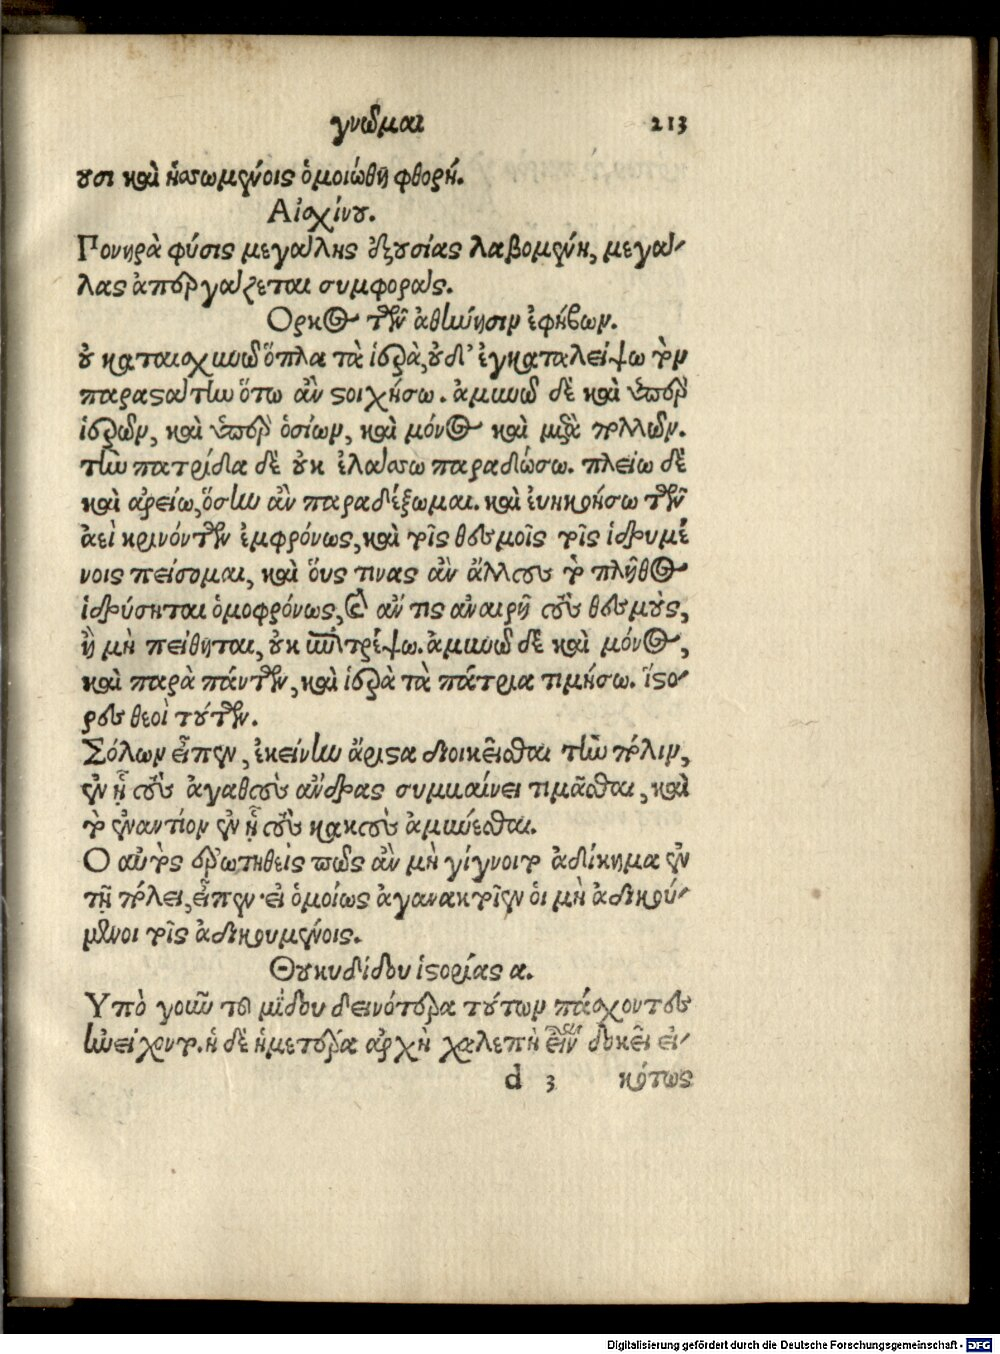 γνῶμαι 213
ουσι καὶ ἡσσωμένοις ὁμοιώθη φθορή.
Αἰσχίνου.
Πονηρὰ φύσις μεγάλης ἐξουσίας λαβομένη, μεγά-
λας ἀπεργάζεται συμφοράς.
Ορκος τῶν ἀθήνησιν ἐφήβων.
οὐ καταισχυνῶ ὅπλα τὰ ἱερὰ, οὐδ' ἐγκαταλείψω τὸν
παραστάτην ὅτω ἂν στοιχήσω. ἀμυνῶ δὲ καὶ ὑπὲρ
ἱερῶν, καὶ ὑπὲρ ὁσίων, καὶ μόνος καὶ μετὰ πολλῶν.
τὴν πατρίδα δὲ οὐκ ἐλάσσω παραδώσω. πλείω δὲ
καὶ ἀρείω, ὅσην ἂν παραδέξωμαι. καὶ ἐυηκοήσω τῶν
ἀεὶ κρινόντων ἐμφρόνως, καὶ τοῖς θεσμοῖς τοῖς ἱδρυμέ
νοις πείσομαι, καὶ οὕς τινας ἂν ἄλλους τὸ πλῆθος
ἱδρύσηται ὁμοφρόνως, καὶ ἄν τις ἀναιρῇ τοὺς θεσμοὺς,
ἢ μὴ πείθηται, οὐκ ἐπιτρέψω. ἀμυνῶ δὲ καὶ μόνος,
καὶ παρὰ πάντων, καὶ ἱερὰ τὰ πάτρια τιμήσω. ἵστο-
ρες θεοὶ τούτων.
Σόλων εἶπεν, ἐκείνην ἄριστα διοικεῖσθαι τὴν πόλιν,
ἐν ᾗ τοὺς ἀγαθοὺς ἄνδρας συμβαίνει τιμᾶσθαι, καὶ
τὸ ἐναντίον ἐν ᾗ τοὺς κακοὺς ἀμύνεσθαι.
Ο αὐτὸς ἐρωτηθεὶς πῶς ἂν μὴ γίγνοιτο ἀδίκημα ἐν
τῇ πόλει, εἶπεν· εἰ ὁμοίως ἀγανακτοῖεν ὁι μὴ ἀδικού-
μενοι τοῖς ἀδικουμένοις.
Θουκυδίδου ἱστορίας α.
Υπὸ γοῦν τοῦ μίδου δεινότερα τούτων πάσχοντες
ἠνείχοντο. ἡ δὲ ἡμετέρα ἀρχὴ χαλεπὴ εἶναι δοκεῖ εἰ-
d 3 κότως
Digitalisierung gefördert durch die Deutsche Forschungsgemeinschaft - DFG